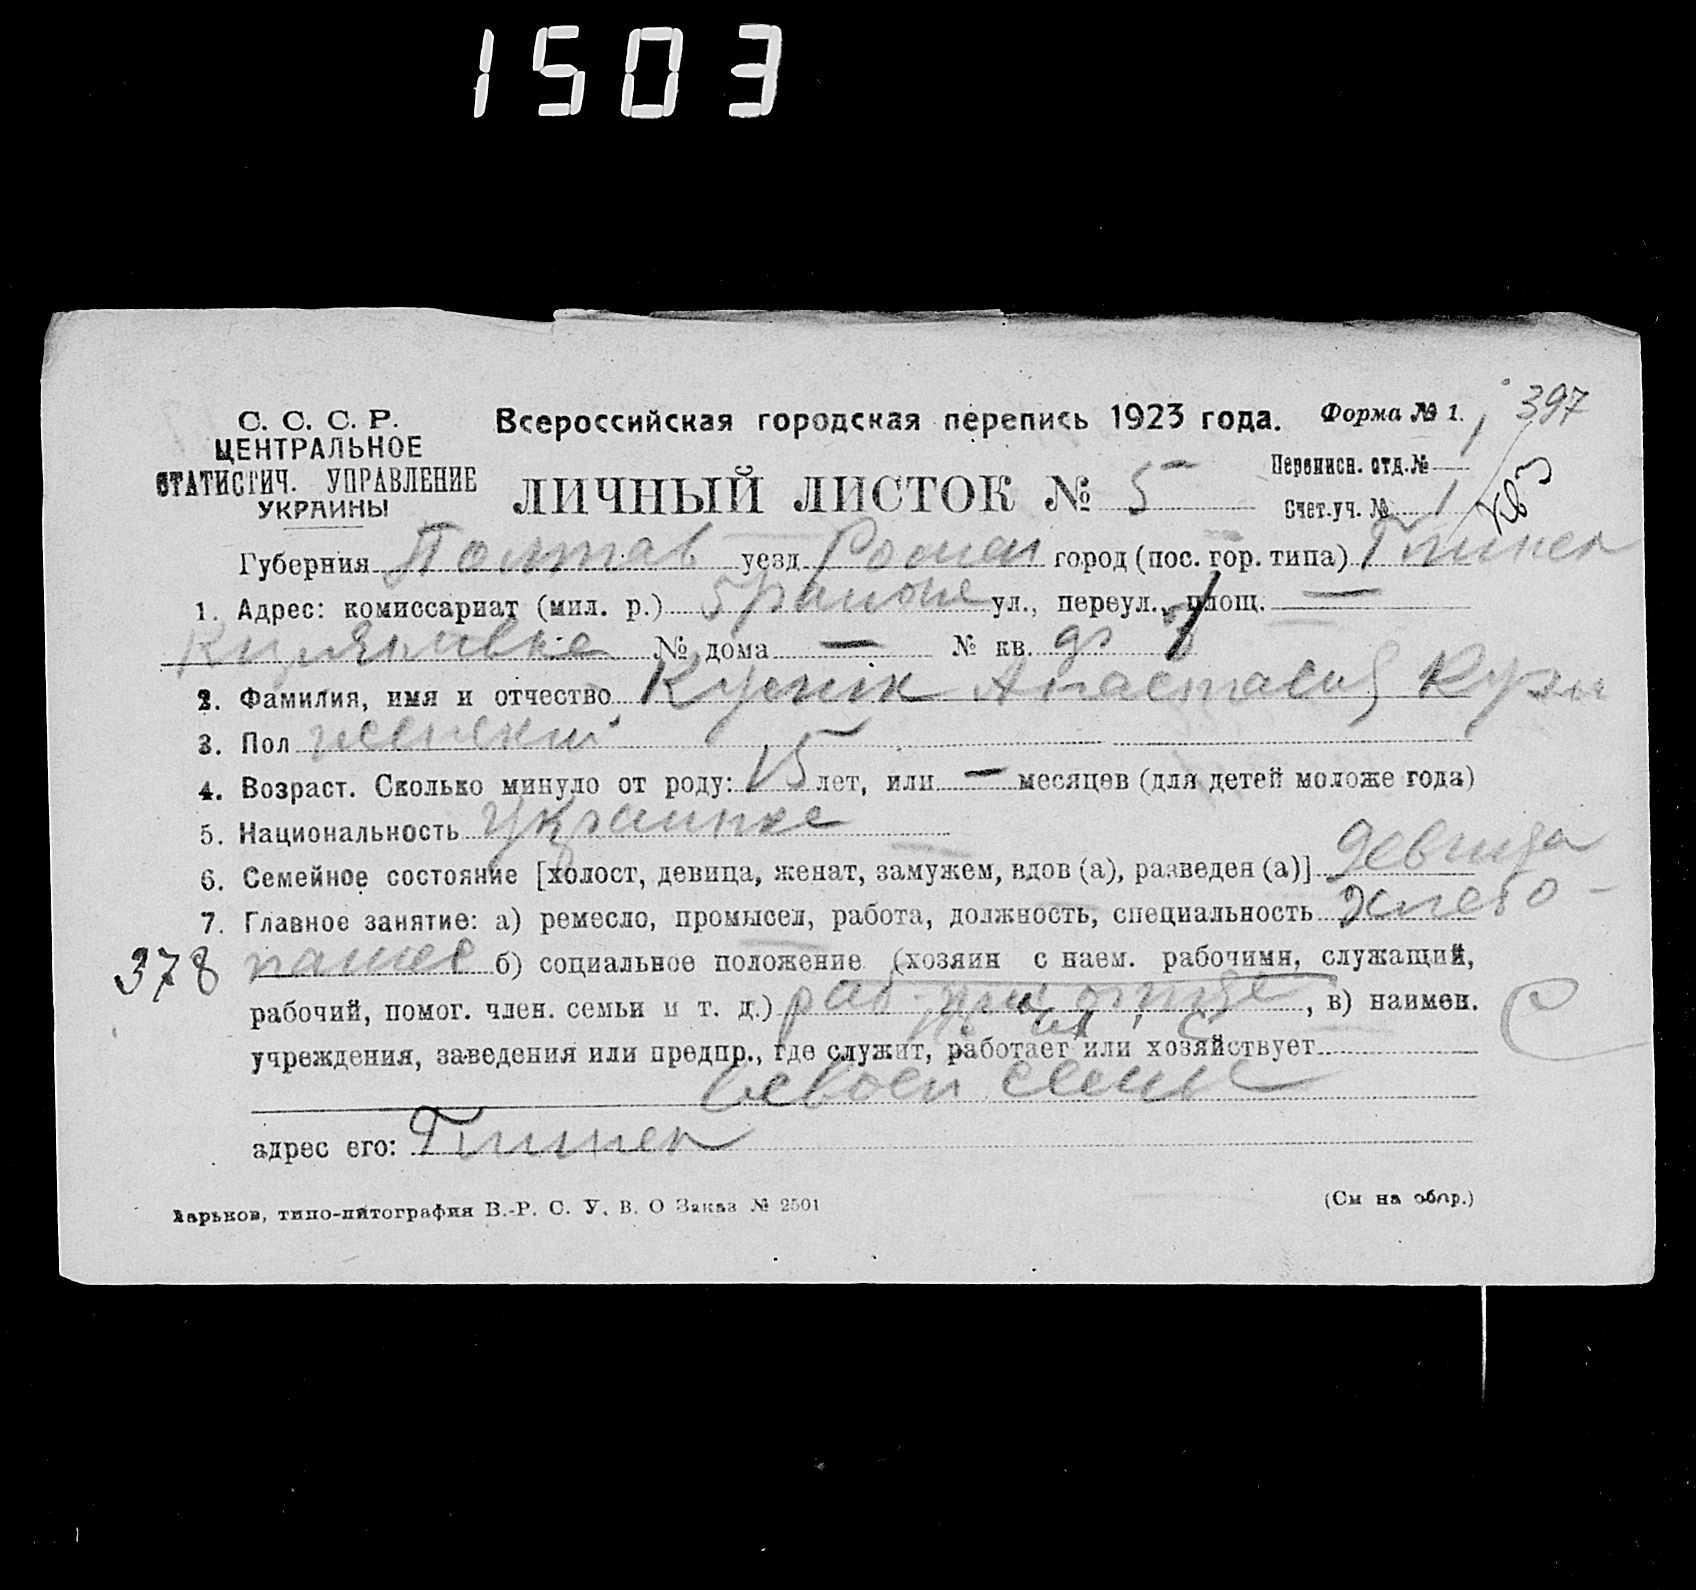 1503
С. С. С. Р.
ЦЕНТРАЛЬНОЕ
СТАТИСТИЧ. УПРАВЛЕНИЕ
УКРАИНЫ
Всероссийская городская перепись 1923 года.
Форма № 1.
397
ЛИЧНЫЙ ЛИСТОК № 5
Переписн. отд. № 1
Счет. уч. № 1
Губерния Полтав уезд Ромен город (пос. гор. типа)
1. Адрес: комиссариат (мил. р.) 5 ул., переул., площ. —
№ дома — № кв.
2. Фамилия, имя и отчество Анастасия Кузм
3. Пол женский
4. Возраст. Сколько минуло от роду: 15 лет, или — месяцев (для детей моложе года)
5. Национальность Украинка
6. Семейное состояние [холост, девица, женат, замужем, вдов (а), разведен (а)] девица
7. Главное занятие: а) ремесло, промысел, работа, должность, специальность хлебо-
378 пашес б) социальное положение (хозяин с наем. рабочими, служащий,
рабочий, помог. член. семьи и т. д.) при отце, в) наимен.
учреждения, заведения или предпр., где служит, работает или хозяйствует
в своей семье
адрес его:
Харьков, типо-литография В.-Р. С. У. В. О Заказ № 2501
(См на обор.)